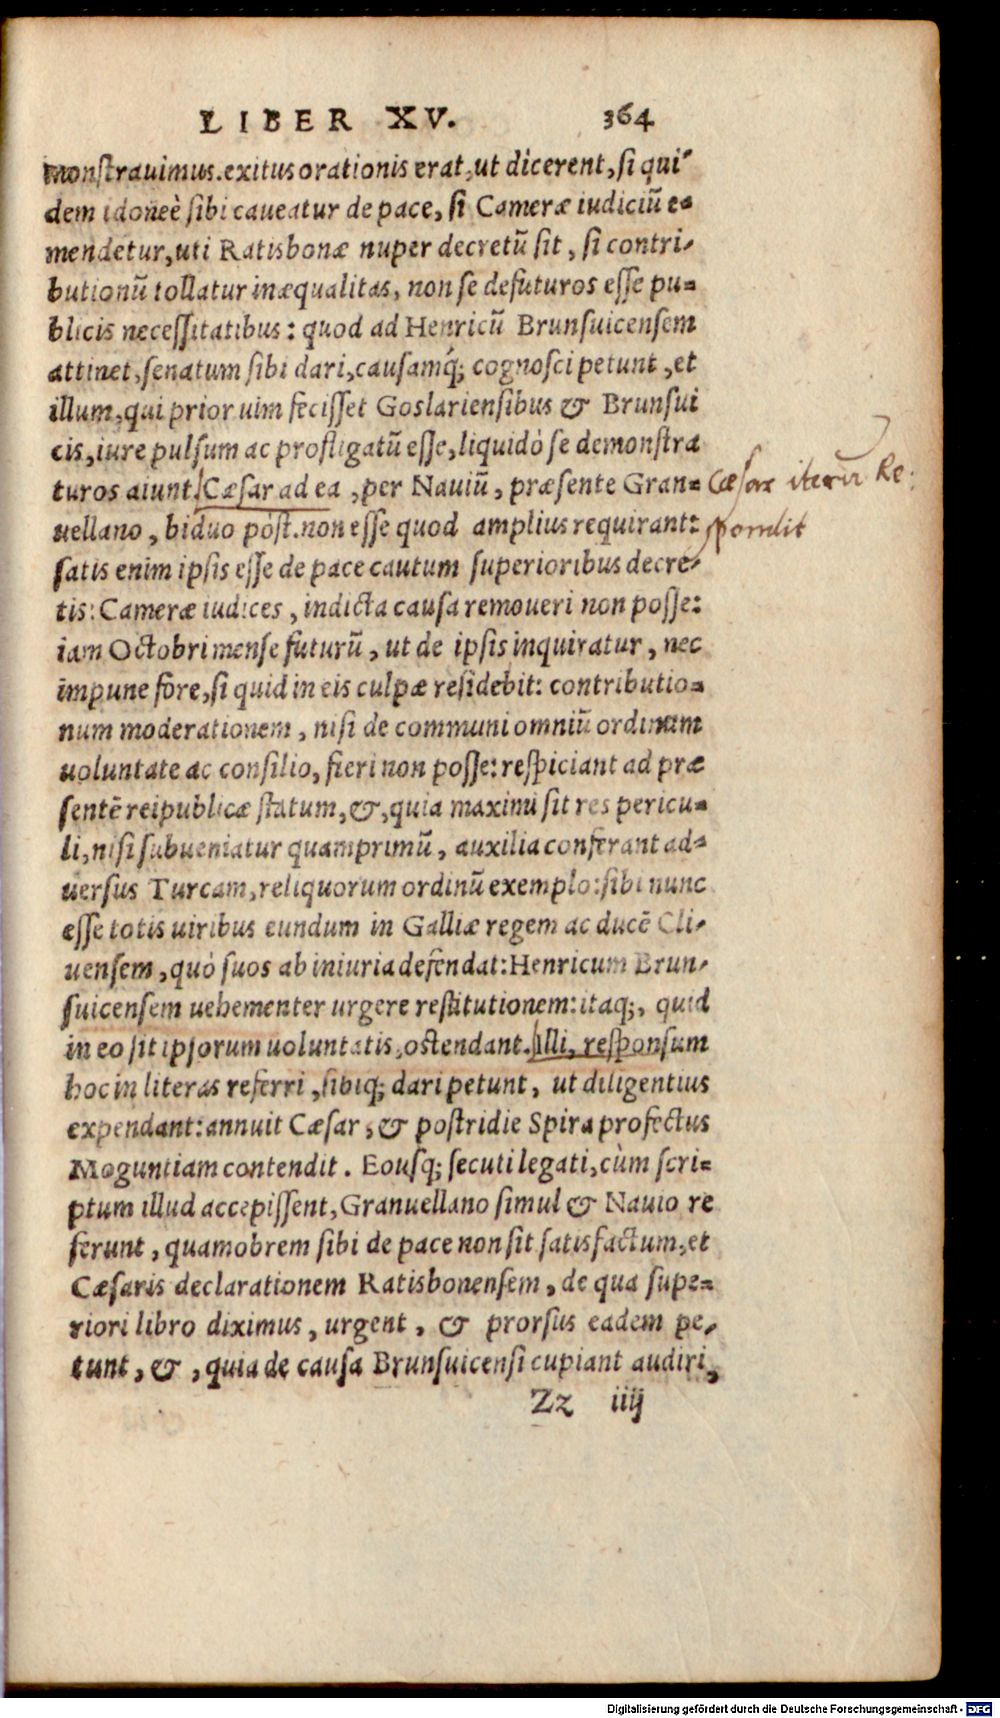 LIBER XV. 364
monstrauimus. exitus orationis erat, ut dicerent, si qui
dem idoneè sibi caueatur de pace, si Cameræ iudiciũ e-
mendetur, uti Ratisbonæ nuper decretũ sit, si contri-
butionũ tollatur inæqualitas, non se defuturos esse pu-
blicis necessitatibus: quod ad Henricũ Brunsuicensem
attinet, senatum sibi dari, causamq́; cognosci petunt, et
illum, qui prior uim fecisset Goslariensibus & Brunsui
cis, iure pulsum ac profligatũ esse, liquidò se demonstra
turos aiunt. Cæsar ad ea, per Nauiũ, præsente Gran-
uellano, biduo pòst. non esse quod amplius requirant:
satis enim ipsis esse de pace cautum superioribus decre-
tis: Cameræ iudices, indicta causa remoueri non posse:
iam Octobri mense futurũ, ut de ipsis inquiratur, nec
impune fore, si quid in eis culpæ residebit: contributio-
num moderationem, nisi de communi omniũ ordinum
uoluntate ac consilio, fieri non posse: respiciant ad præ
sentẽ reipublicæ statum, &, quia maximi sit res pericu-
li, nisi subueniatur quamprimũ, auxilia conferant ad-
uersus Turcam, reliquorum ordinũ exemplo: sibi nunc
esse totis uiribus eundum in Galliæ regem ac ducẽ Cli-
uensem, quò suos ab iniuria defendat: Henricum Brun-
suicensem uehementer urgere restitutionem: itaq;, quid
in eo sit ipsorum uoluntatis, ostendant. Illi, responsum
hoc in literas referri, sibiq; dari petunt, ut diligentius
expendant: annuit Cæsar, & postridie Spira profectus
Moguntiam contendit. Eousq; secuti legati, cùm scri-
ptum illud accepissent, Granuellano simul & Nauio re
ferunt, quamobrem sibi de pace non sit satisfactum, et
Cæsaris declarationem Ratisbonensem, de qua supe-
riori libro diximus, urgent, & prorsus eadem pe-
tunt, &, quia de causa Brunsuicensi cupiant audiri,
Zz iiij
Cæsar iterũ Re:
spondit
Digitalisierung gefördert durch die Deutsche Forschungsgemeinschaft - DFG